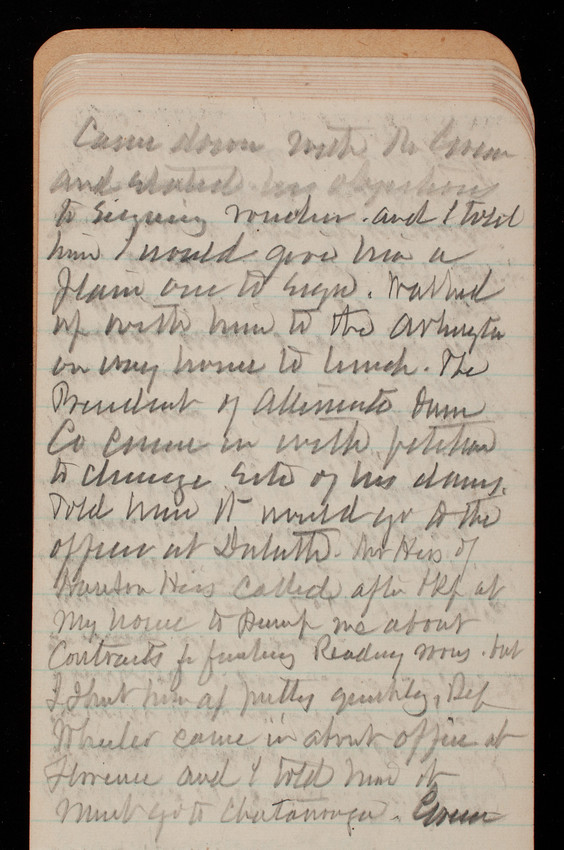 Came down with the
and stated his objections
to signing voucher. and I told
him I would give him a
plain one to sign. Walked
up with him to the Arlington
on way home to lunch. The
President of Dam
Co came in with petition
to change site of his dams.
Told him it would go to the
office at Duluth. Mr Hess of
Hess called after at
my house to pump me about
Contracts for Reading rooms. but
I shut him up pretty quickly. Rep
Wheeler came in about office at
Florence and I told him it
must go to Chatanooga.